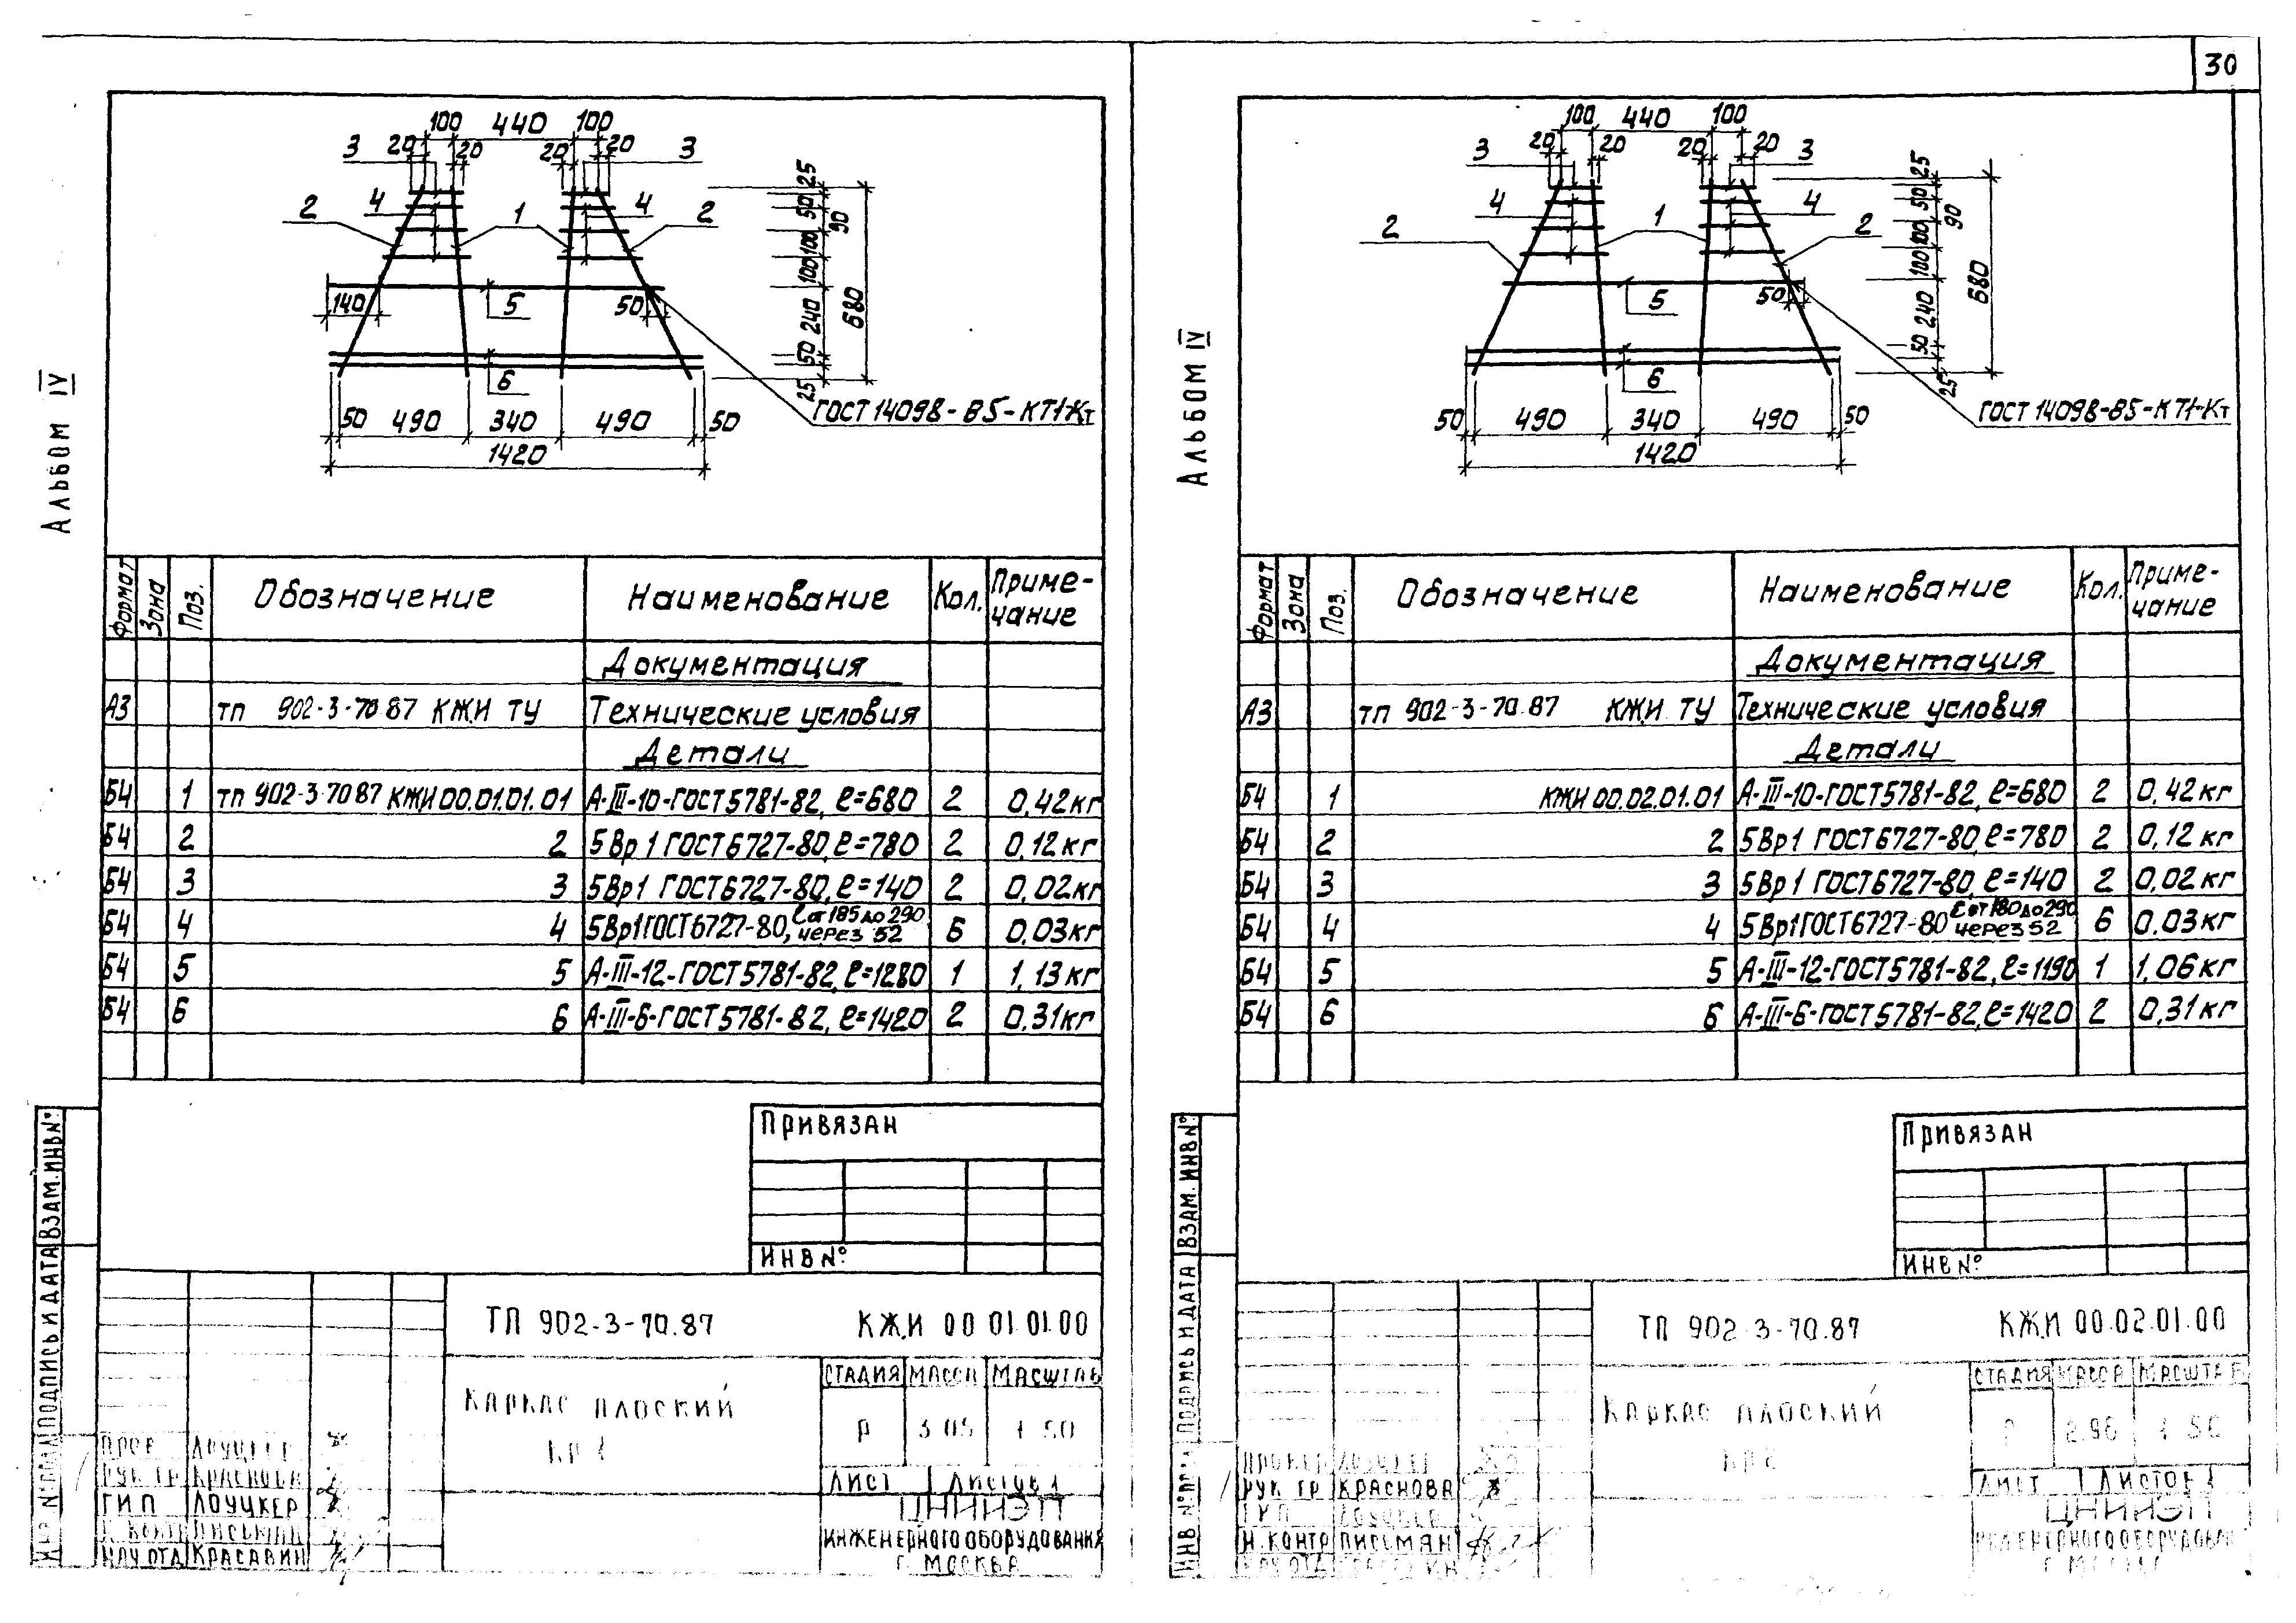 30
Альбом IV
100 440 100
3 20 20 20 20 3
2 4 1 4 2
25
50
90
100
100
240
50
25
680
140 5 50
6
ГОСТ 14098-В5-КТ1-Кт
50 490 340 490 50
1420
Формат Зона Поз. Обозначение Наименование Кол. Приме-
чание
Документация
А3 ТП 902-3-70 87 КЖИ ТУ Технические условия
Детали
Б4 1 ТП 902-3-70 87 КЖИ 00.01.01.01 А-III-10-ГОСТ 5781-82, ℓ=680 2 0,42 кг
Б4 2 2 5Вр1 ГОСТ 6727-80, ℓ=780 2 0,12 кг
Б4 3 3 5Вр1 ГОСТ 6727-80, ℓ=140 2 0,02 кг
Б4 4 4 5Вр1 ГОСТ 6727-80, ℓ от 185 до 290 через 52 6 0,03 кг
Б4 5 5 А-III-12-ГОСТ 5781-82, ℓ=1280 1 1,13 кг
Б4 6 6 А-III-6-ГОСТ 5781-82, ℓ=1420 2 0,31 кг
Привязан
ИНВ №
ТП 902-3-70.87 КЖИ 00 01.01.00
Каркас плоский
Стадия Масса Масштаб
Р 3.05 1 50
Лист Листов 1
ЦНИИЭП
инженерного оборудования
г. Москва
Пров Лоуцкер
Рук гр Краснова
ГИП Лоуцкер
Н. контр Письман
Нач отд Красавин
Подпись и дата Взам. инв №
Альбом IV
100 440 100
3 20 20 20 20 3
2 4 1 4 2
25
50
90
100
100
240
50
25
680
5 50
6
ГОСТ 14098-В5-КТ1-Кт
50 490 340 490 50
1420
Формат Зона Поз. Обозначение Наименование Кол. Приме-
чание
Документация
А3 ТП 902-3-70.87 КЖИ ТУ Технические условия
Детали
Б4 1 КЖИ 00.02.01.01 А-III-10-ГОСТ 5781-82, ℓ=680 2 0,42 кг
Б4 2 2 5Вр1 ГОСТ 6727-80, ℓ=780 2 0,12 кг
Б4 3 3 5Вр1 ГОСТ 6727-80, ℓ=140 2 0,02 кг
Б4 4 4 5Вр1 ГОСТ 6727-80 ℓ от 180 до 290 через 52 6 0,03 кг
Б4 5 5 А-III-12-ГОСТ 5781-82, ℓ=1190 1 1,06 кг
Б4 6 6 А-III-6-ГОСТ 5781-82, ℓ=1420 2 0,31 кг
Привязан
ИНВ №
ТП 902-3-70.87 КЖИ 00.02.01.00
Каркас плоский
Стадия Масса Масштаб
Лист Листов 1
ЦНИИЭП
Рук гр Краснова
Н. контр Письман
Инв № Подпись и дата Взам. инв №